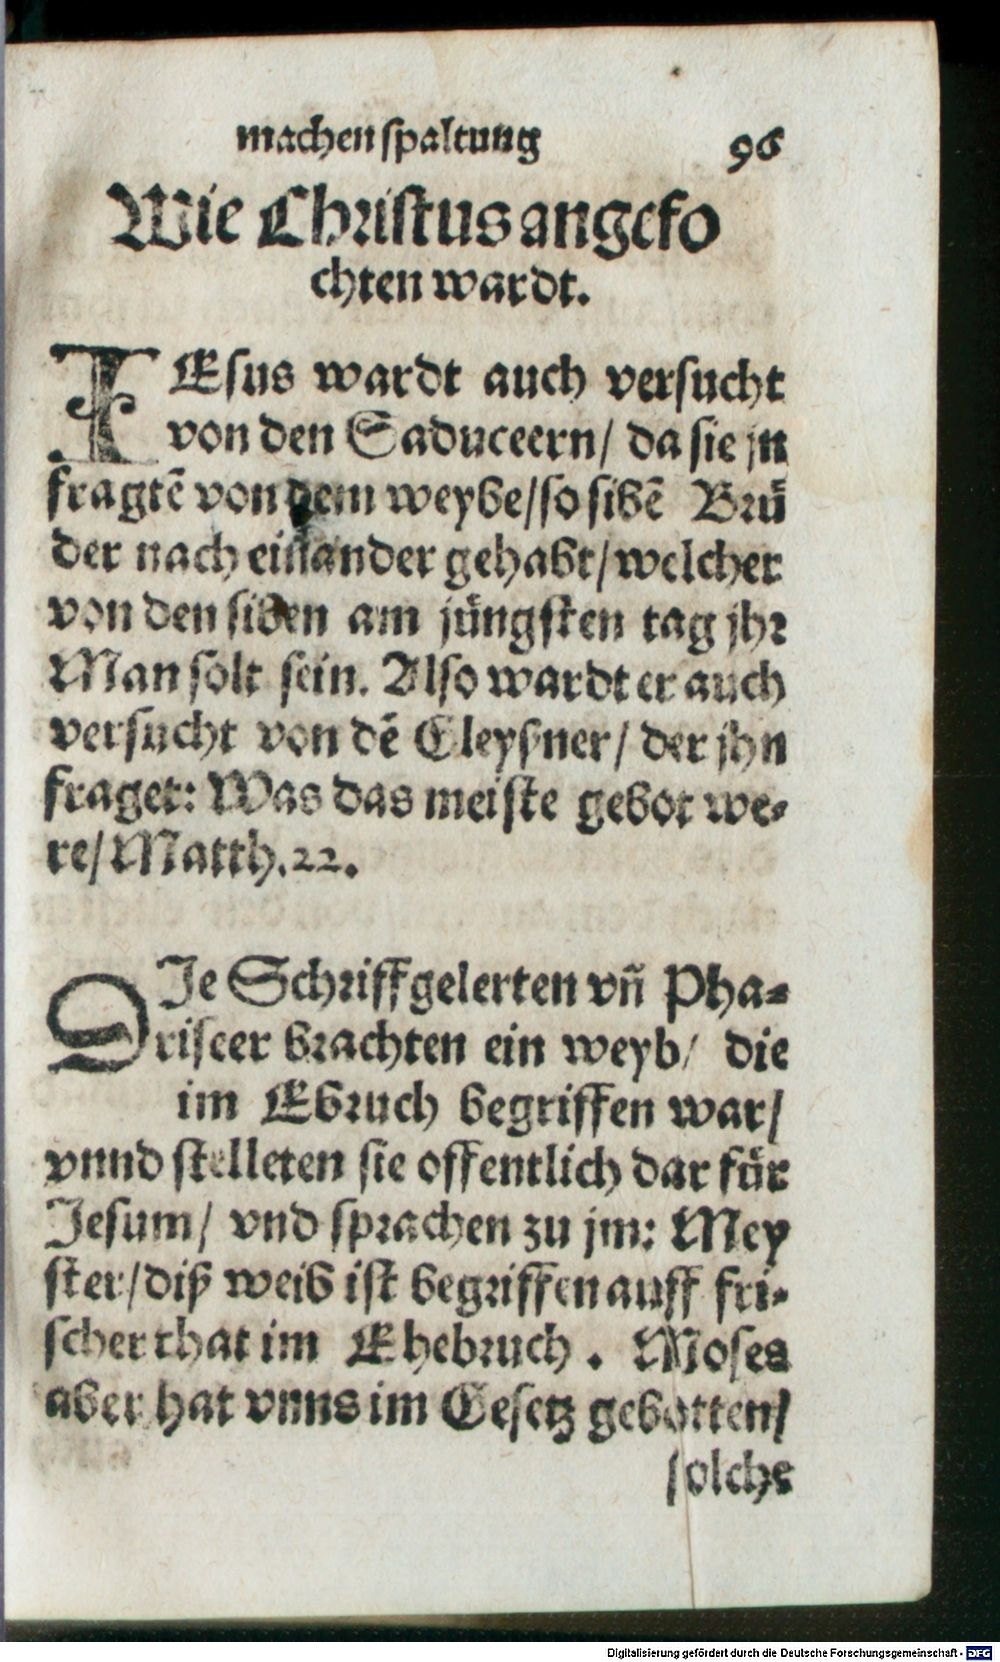 machen spaltung 96
Wie Christus angefo
chten wardt.
JEsus wardt auch versucht
von den Saduceern/ da sie jn
fragtẽ von dem weybe/so sibẽ Bruͤ
der nach einander gehabt/welcher
von den siben am juͤngsten tag jhr
Man solt sein. Also wardt er auch
versucht von dẽ Gleyßner/ der jhn
fraget: Was das meiste gebot we-
re/Matth.22.
DJe Schriffgelerten vñ Pha-
riseer brachten ein weyb/ die
im Ebruch begriffen war/
vnnd stelleten sie offentlich dar fuͤr
Jesum/ vnd sprachen zu jm: Mey
ster/diß weib ist begriffen auff fri-
scher that im Ehebruch. Moses
aber hat vnns im Gesetz gebotten/
solche
Digitalisierung gefördert durch die Deutsche Forschungsgemeinschaft - DFG